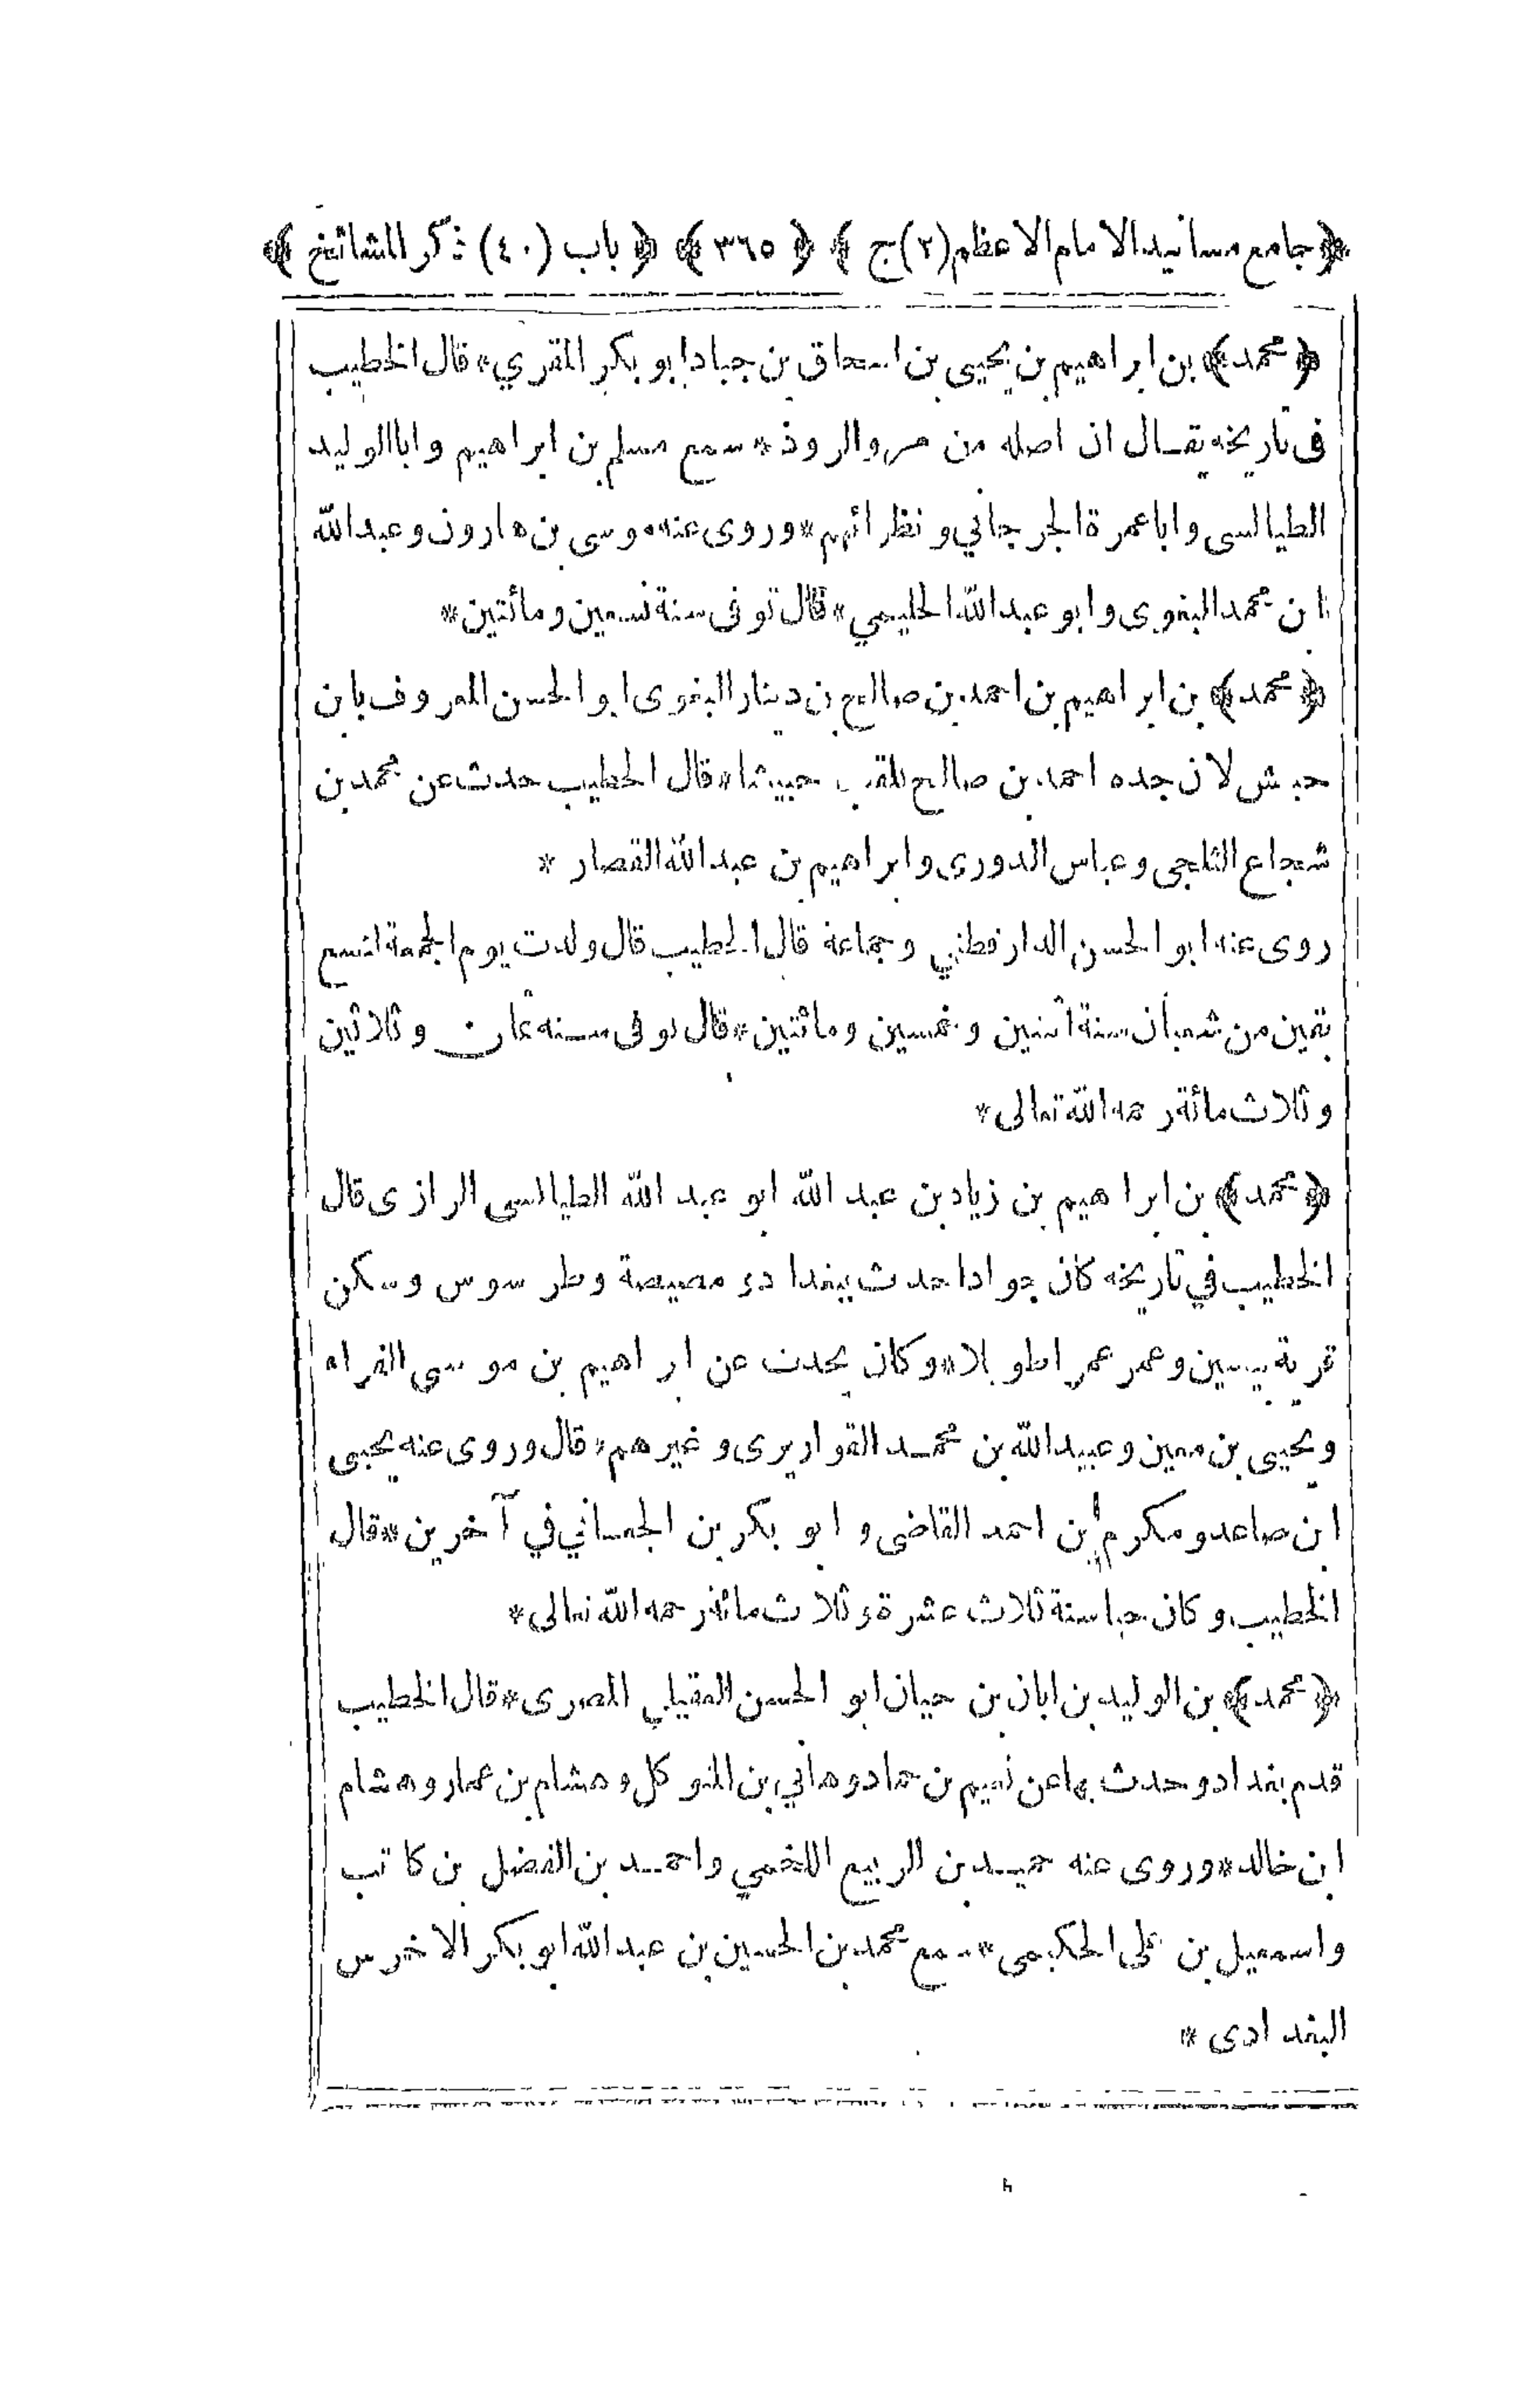 ﴿جامع مسانيد الامام الاعظم (٢) ج﴾ ﴿٣٦٥﴾ ﴿باب (٤٠) ذكر المشائخ﴾
﴿محمد﴾ بن ابراهيم بن يحيى بن اسحاق بن جناد ابو بكر المقري * قال الخطيب
فى تاريخه يقال ان اصله من مروالروذ * سمع مسلم بن ابراهيم واباالوليد
الطيالسى واباعمرة الجرجاني ونظرائهم * وروى عنه موسى بن هارون وعبدالله
ابن محمد البغوى وابو عبدالله الحليمي * قال توفى سنة تسعين ومائتين *
﴿محمد﴾ بن ابراهيم بن احمد بن صالح بن دينار البغوى ابو الحسن المعروف بابن
حبيش لان جده احمد بن صالح يلقب حبيشا * قال الخطيب حدث عن محمد بن
شجاع الثلجى وعباس الدورى وابراهيم بن عبدالله القصار *
روى عنه ابو الحسن الدارقطني وجماعة قال الخطيب قال ولدت يوم الجمعة لتسع
بقين من شعبان سنة اثنين وخمسين ومائتين * قال توفى سنة ثمان وثلاثين
وثلاث مائة رحمه الله تعالى *
﴿محمد﴾ بن ابراهيم بن زياد بن عبد الله ابو عبد الله الطيالسى الرازى قال
الخطيب في تاريخه كان جوادا حدث ببغداد ومصيصة وطرسوس وسكن
قرية يسين وعمر عمرا طويلا * وكان يحدث عن ابراهيم بن موسى الفراء
ويحيى بن معين وعبيدالله بن محمد القواريرى وغيرهم * قال وروى عنه يحيى
ابن صاعد ومكرم بن احمد القاضى وابو بكر بن الجعساني في آخرين * قال
الخطيب وكان حيا سنة ثلاث عشرة وثلاث مائة رحمه الله تعالى *
﴿محمد﴾ بن الوليد بن ابان بن حيان ابو الحسن العقيلي المصرى * قال الخطيب
قدم بغداد وحدث بها عن نعيم بن حماد وهاني بن المتوكل وهشام بن عمار وهشام
ابن خالد * وروى عنه حميد بن الربيع اللخمي واحمد بن الفضل بن كاتب
واسمعيل بن على الحكيمى * سمع محمد بن الحسين بن عبدالله ابو بكر الاخرس
البغدادى *